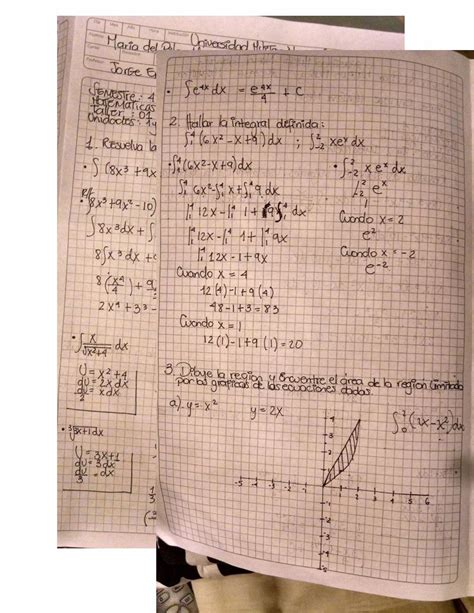 María del
Universidad
Jorge
Semestre: 4
Matemáticas
Taller: 01
Unidades: 1 y
1. Resuelva la
• ∫(8x³ + 9x
R/ ∫8x³ + 9x² - 10)
∫8x³dx + ∫
8∫x³dx +
8(x⁴/4) + 9
2x⁴ + 3³ -
• ∫ x/√x²+4 dx
U = x² + 4
du = 2x dx
du/2 = x dx
• ³√3x+1 dx
U = 3x+1
du = 3dx
du/3 = dx
• ∫e⁴ˣdx = e⁴ˣ/4 + C
2. Hallar la integral definida:
∫₁⁴(6x² - x + 9)dx ; ∫₋₂² xeˣdx
• ∫₁⁴(6x² - x + 9)dx
∫₁⁴6x² - ∫₁⁴x + ∫₁⁴9 dx
|₁⁴ 12x - |₁⁴ 1 + 9x∫₁⁴ dx
|₁⁴ 12x - |₁⁴ 1 + |₁⁴ 9x
|₁⁴ 12x - 1 + 9x
Cuando x = 4
12(4) - 1 + 9(4)
48 - 1 + 3 = 83
Cuando x = 1
12(1) - 1 + 9(1) = 20
• ∫₋₂² xeˣdx
|₋₂² eˣ
Cuando x = 2
e²
Cuando x = -2
e⁻²
3. Dibuje la region y encuentre el área de la region limitada
por las graficas de las ecuaciones dadas.
a) y = x² y = 2x
∫₀²(2x - x²)dx
-5 -4 -3 -2 -1 1 2 3 4 5 6